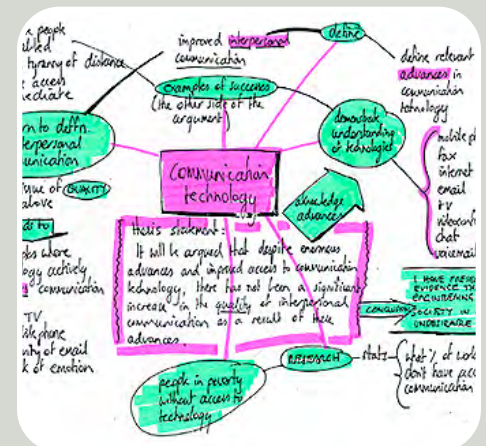 people
tyranny of distance
access
mediate
improved interpersonal
communication
define
define relevant
advances in
communication
technology
examples of success
(the other side of the
argument)
demonstrate
understanding
of technologies
mobile
fax
internet
email
TV
chat
voicemail
to deffn.
interpersonal
communication
of QUALITY
above
communication
technology
acknowledge
advances
thesis statement:
It will be argued that despite enormous
advances and improved access to communication
technology, there has not been a significant
increase in the quality of interpersonal
communication as a result of these
advances.
where
actively
communication
TV
of email
of emotion
I HAVE
EVIDENCE
ENGINEERING
SOCIETY IN
CONCLUSION
RESEARCH
stats
what % of
don't have
communication
people in poverty
without access to
technology